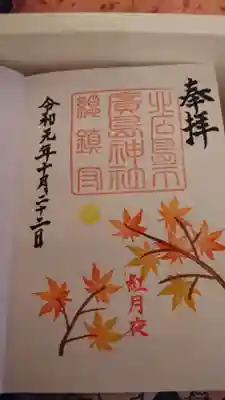 奉拝
北広島市
廣島神社
總鎮守
紅月夜
令和元年十月二十二日